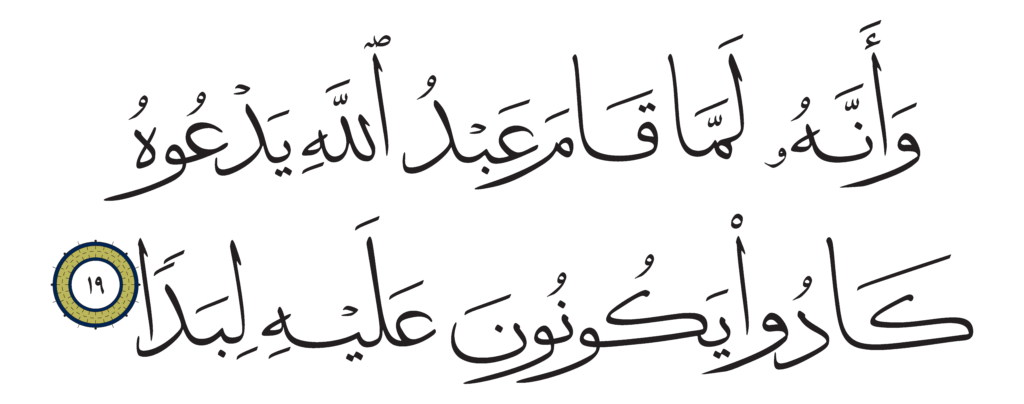 وَأَنَّهُۥ لَمَّا قَامَ عَبْدُ ٱللَّهِ يَدْعُوهُ
كَادُوا۟ يَكُونُونَ عَلَيْهِ لِبَدًا ١٩